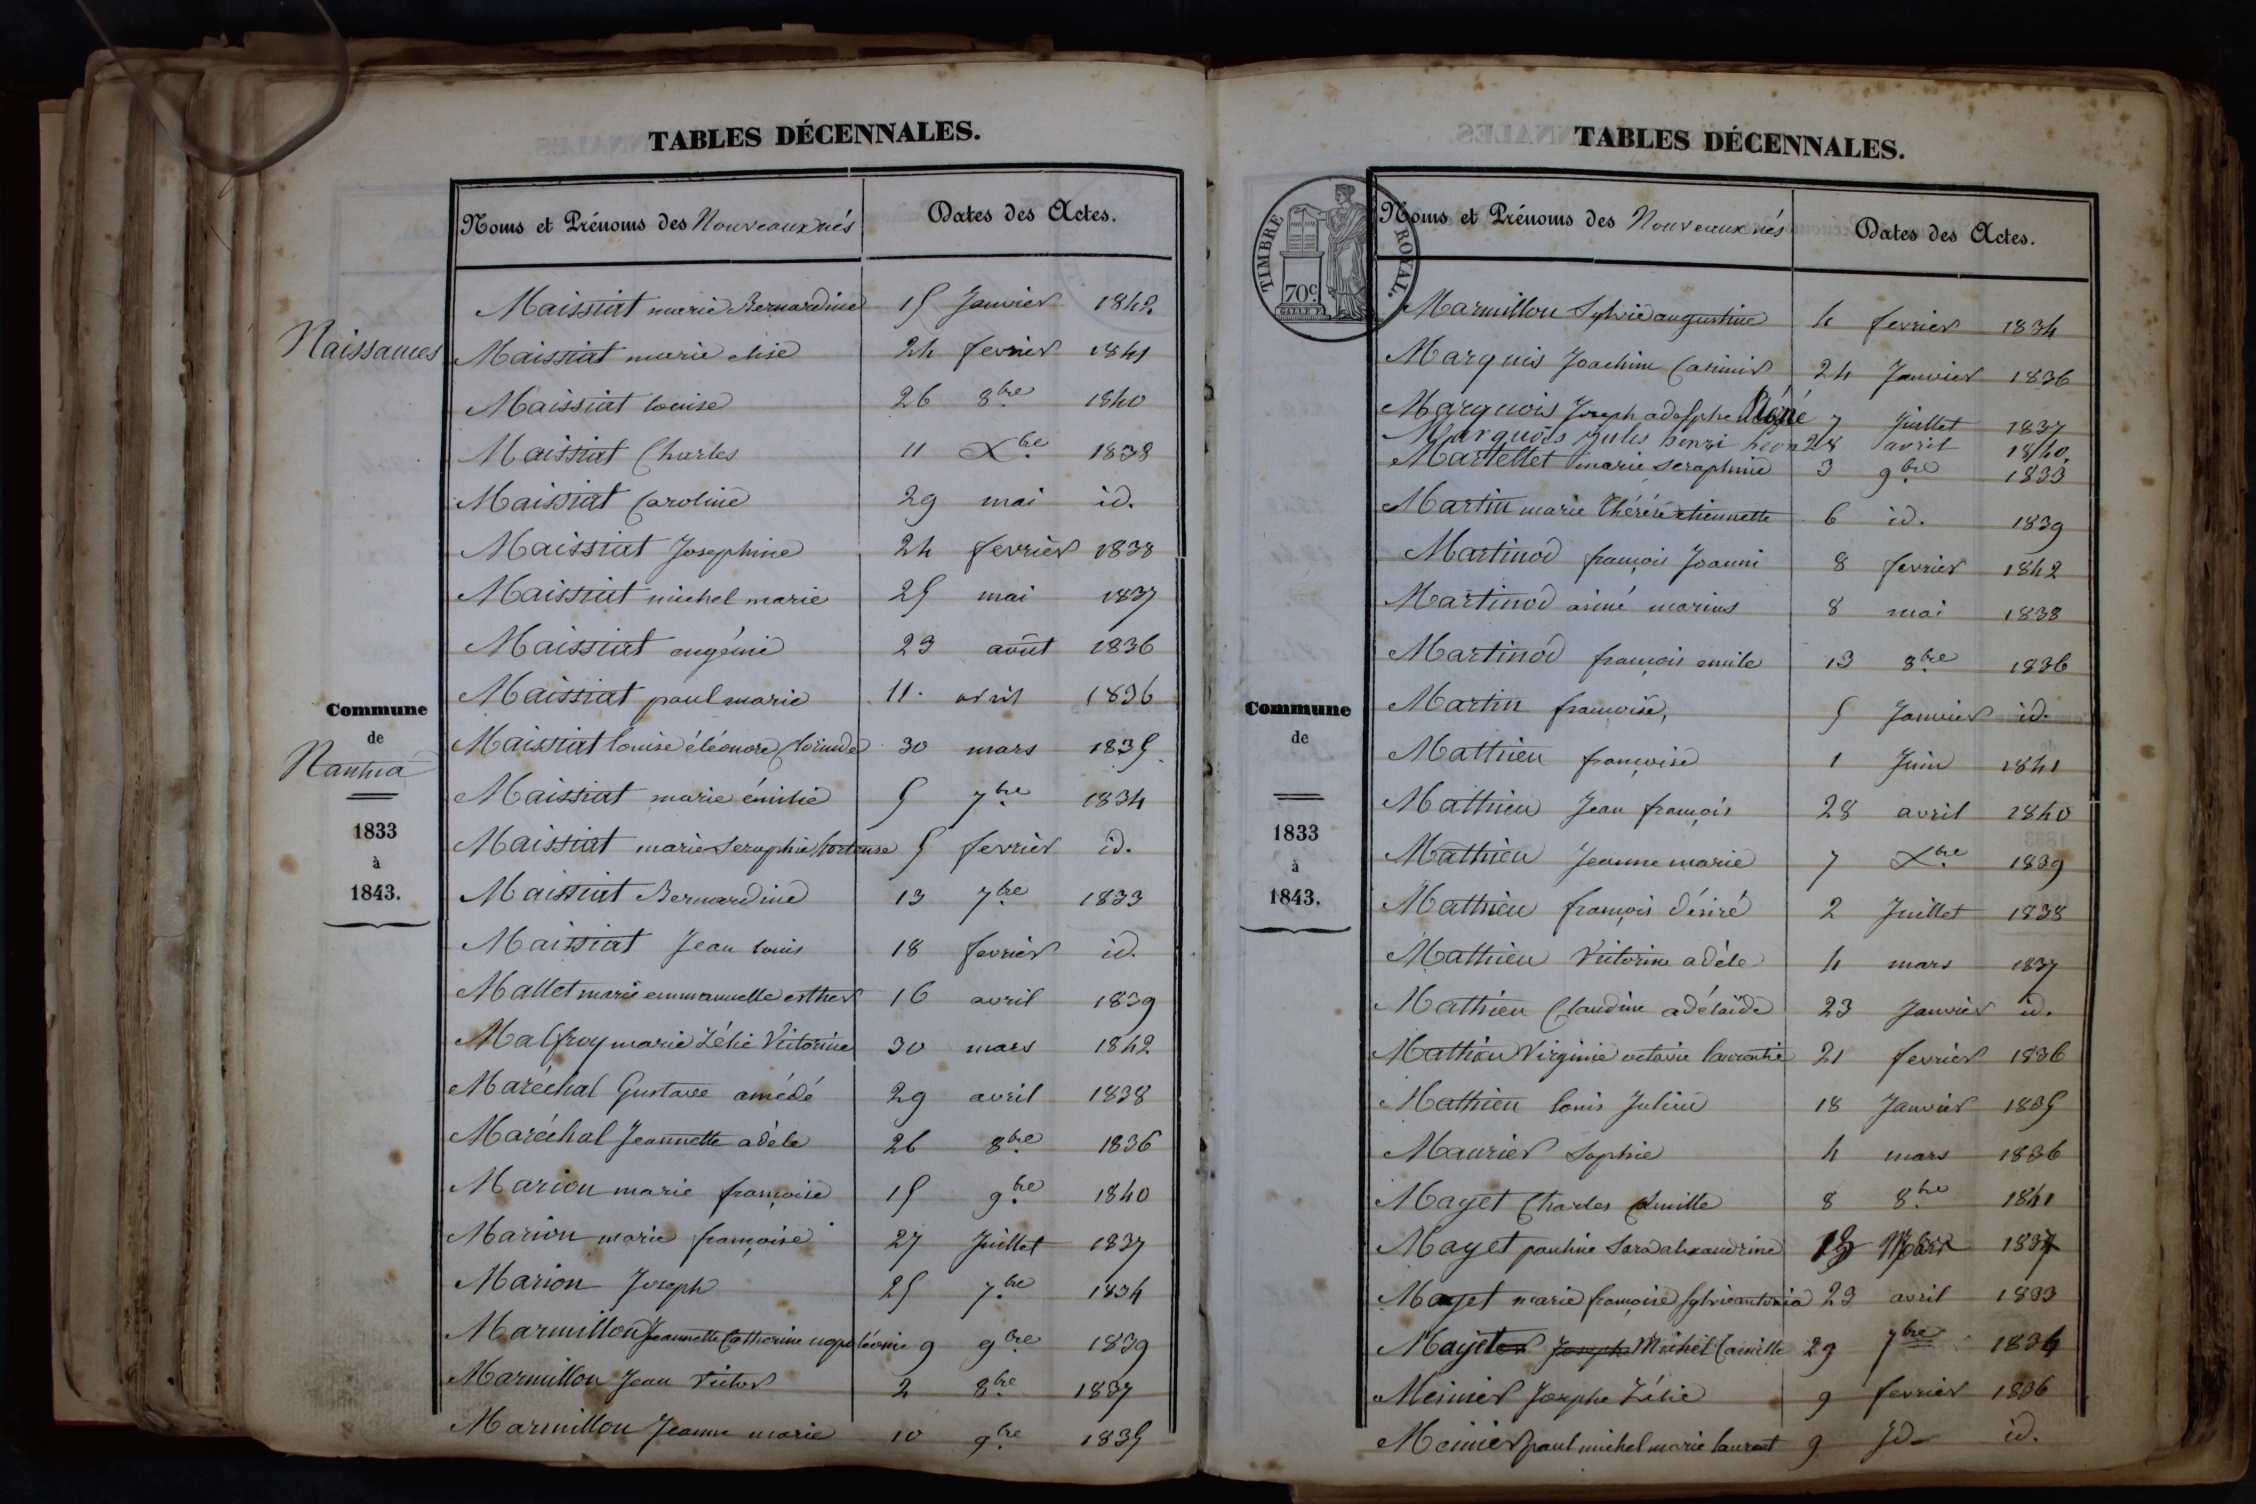 TABLES DÉCENNALES.
Noms et Prénoms des Nouveaux nés Dates des Actes.
Naissances
Commune
de
Nantua
1833
à
1843.
Maissiat marie Bernardine 15 Janvier 1842.
Maissiat marie elise 24 fevrier 1841
Maissiat louise 26 8bre 1840
Maissiat Charles 11 Xbre 1838
Maissiat Caroline 29 mai id.
Maissiat Josephine 24 fevrier 1838
Maissiat michel marie 25 mai 1837
Maissiat eugénie 23 août 1836
Maissiat paul marie 11. avril 1836
Maissiat louise éléonore Clorinde 30 mars 1835
Maissiat marie émilie 5 7bre 1834
Maissiat marie Seraphie hortense 5 fevrier id.
Maissiat Bernardine 13 7bre 1833
Maissiat Jean louis 18 fevrier id.
Mallet marie emmanuelle esther 16 avril 1839
Malfroy marie Zélie Victorine 30 mars 1842
Maréchal Gustave amédé 29 avril 1838
Maréchal Jeannette adèle 26 8bre 1836
Marion marie françoise 15 9bre 1840
Marion marie françoise 27 Juillet 1837
Marion Joseph 25 7bre 1834
Marmillon Jeannette Catherine napoléonie 9 9bre 1839
Marmillon Jean Victor 2 8bre 1837
Marmillon Jeanne marie 10 9bre 1835
TABLES DÉCENNALES.
TIMBRE ROYAL.
70c
Noms et Prénoms des Nouveaux nés Dates des Actes.
Commune
de
1833
à
1843.
Marmillon Sylvie augustine 4 fevrier 1834
Marquis Joachim Casimir 24 Janvier 1836
Marquois Joseph adolphe 7 Juillet 1837
Marquois Jules henri léon 28 avril 1840.
Martellet marie seraphine 3 9bre 1833
Martin marie Thérése etiennette 6 id. 1839
Martinod françois Joanni 8 fevrier 1842
Martinod aimé marius 8 mai 1838
Martinod françois emile 13 8bre 1836
Martin françoise, 5 Janvier id.
Mathieu françoise 1 Juin 1841
Mathieu Jean françois 28 avril 1840
Mathieu Jeanne marie 7 Xbre 1839
Mathieu françois désiré 2 Juillet 1838
Mathieu Victorine adéle 4 mars 1837
Mathieu Claudine adélaïde 23 Janvier id.
Mathieu Virginie octavie laurentie 21 fevrier 1836
Mathieu louis Julien 18 Janvier 1835
Maurier Sophie 4 mars 1836
Mayet Charles Camille 8 8bre 1841
Mayet pauline Sara alexandrine 1837
Mayet marie françoise Sylvie antonia 23 avril 1833
Mayet Joseph Michel Camille 29 7bre 1834
Meinier Josephe Zélie 9 fevrier 1836
Meinier paul michel marie laurent 9 Id id.